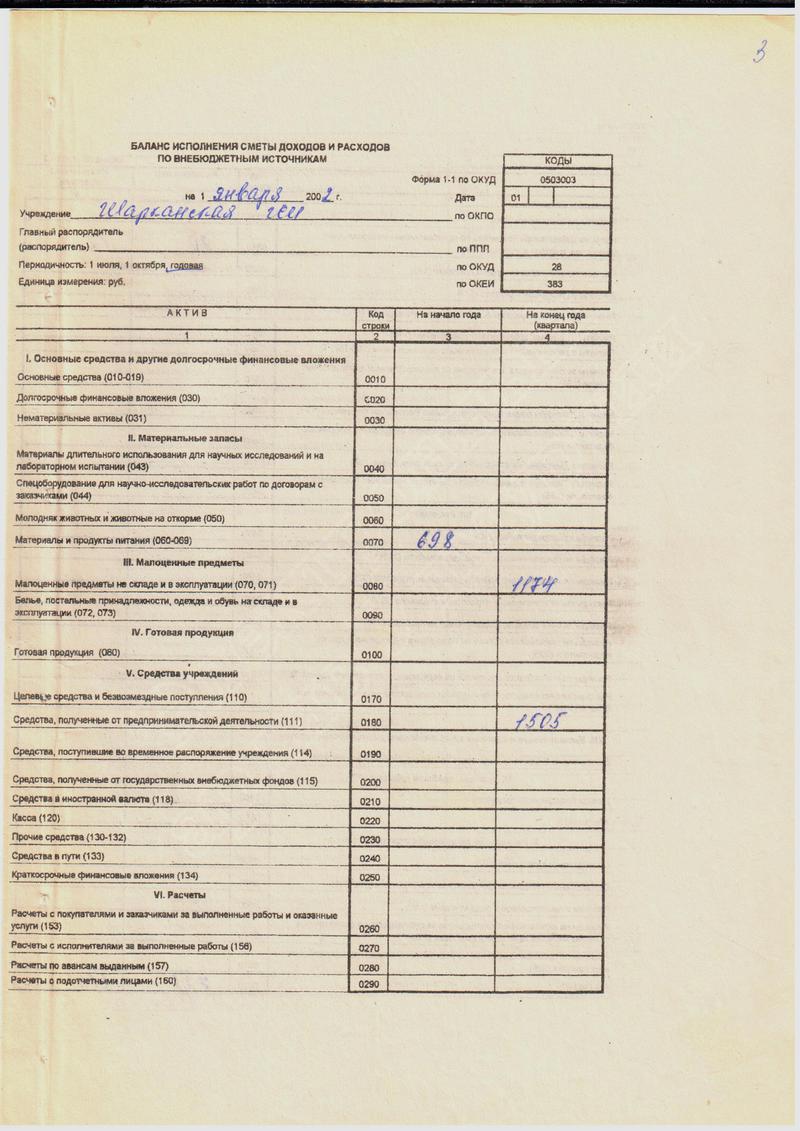 3
БАЛАНС ИСПОЛНЕНИЯ СМЕТЫ ДОХОДОВ И РАСХОДОВ
ПО ВНЕБЮДЖЕТНЫМ ИСТОЧНИКАМ
КОДЫ
Форма 1-1 по ОКУД 0503003
на 1 января 2002 г. Дата 01
Учреждение Шарканская по ОКПО
Главный распорядитель
(распорядитель) по ППП
Периодичность: 1 июля, 1 октября, годовая по ОКУД 28
Единица измерения: руб. по ОКЕИ 383
АКТИВ Код строки На начало года На конец года (квартала)
1 2 3 4
I. Основные средства и другие долгосрочные финансовые вложения
Основные средства (010-019) 0010
Долгосрочные финансовые вложения (030) 0020
Нематериальные активы (031) 0030
II. Материальные запасы
Материалы длительного использования для научных исследований и на
лабораторном испытании (043) 0040
Спецоборудование для научно-исследовательских работ по договорам с
заказчиками (044) 0050
Молодняк животных и животные на откорме (050) 0060
Материалы и продукты питания (060-069) 0070 698
III. Малоценные предметы
Малоценные предметы не складе и в эксплуатации (070, 071) 0080 1174
Белье, постельные принадлежности, одежда и обувь на складе и в
эксплуатации (072, 073) 0090
IV. Готовая продукция
Готовая продукция (080) 0100
V. Средства учреждений
Целевые средства и безвозмездные поступления (110) 0170
Средства, полученные от предпринимательской деятельности (111) 0180 1505
Средства, поступившие во временное распоряжение учреждения (114) 0190
Средства, полученные от государственных внебюджетных фондов (115) 0200
Средства в иностранной валюте (118) 0210
Касса (120) 0220
Прочие средства (130-132) 0230
Средства в пути (133) 0240
Краткосрочные финансовые вложения (134) 0250
VI. Расчеты
Расчеты с покупателями и заказчиками за выполненные работы и оказанные
услуги (153) 0260
Расчеты с исполнителями за выполненные работы (156) 0270
Расчеты по авансам выданным (157) 0280
Расчеты с подотчетными лицами (160) 0290